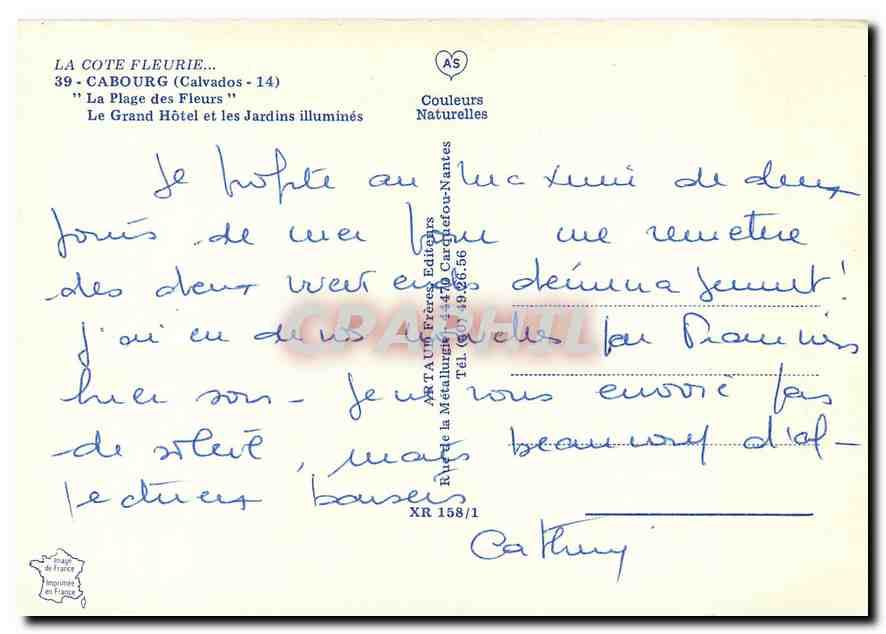 LA COTE FLEURIE...
39 - CABOURG (Calvados - 14)
" La Plage des Fleurs "
Le Grand Hôtel et les Jardins illuminés
AS
Couleurs
Naturelles
Je profite au maximum de deux
jours de mer pour me remettre
des deux
J'ai eu de vos nouvelles par Francis
hier soir - Je ne vous envoie pas
de soleil, mais beaucoup d'af-
fectueux baisers
Cathy
ARTAUD Frères, Editeurs
Rue de la Métallurgie - 44470 Carquefou-Nantes
Tél. (40) 49.26.56
XR 158/1
Image
de France
Imprimée
en France
CPAPHIL